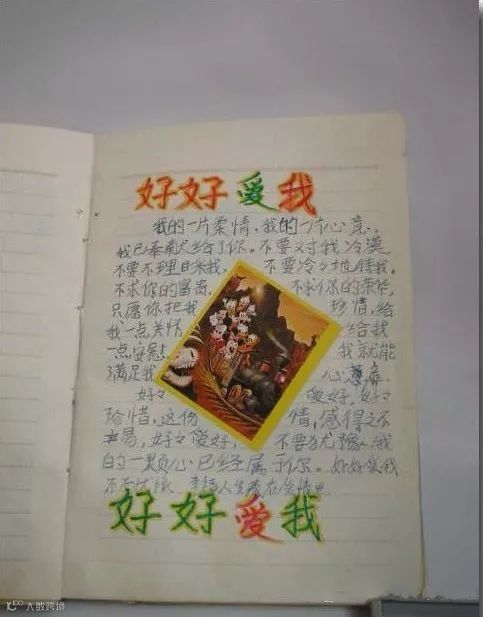 好好爱我
我的一片柔情,我的一片心意,
我已奉献给了你。不要对我冷漠
不要不理日来我, 不要冷々地待我,
不求你的富贵, 不求你的荣华,
只愿你把我 珍惜,给
我一点关怀 给我
一点安慰 我就能
满足我 心意
好々 爱好,好々
珍惜,这份 情,感得之不
易,好々爱好, 不要犹豫,我
的一颗心已经属于你。好好爱我
不
好好爱我
大数跨境